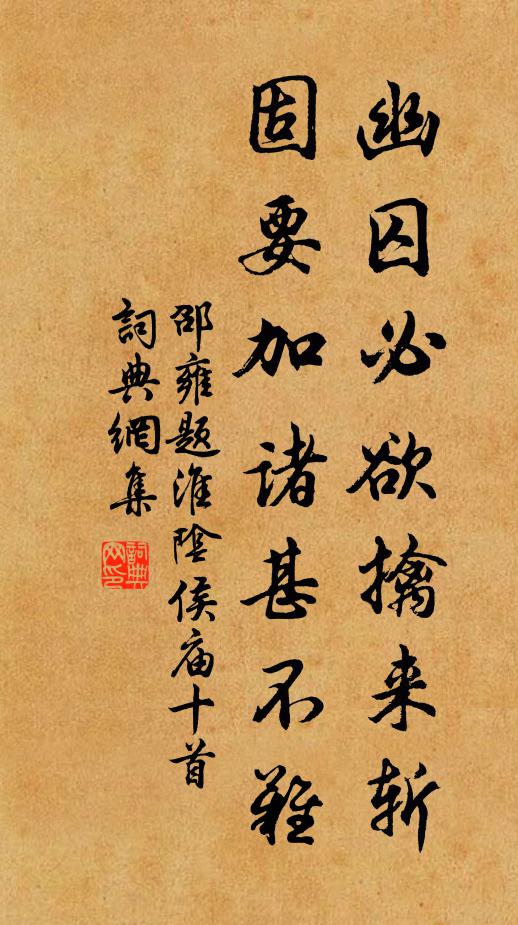 幽囚必欲擒来斩
固要加诸甚不难
邵雍题淮陰侯庙十首
詞典網集
詞典网印